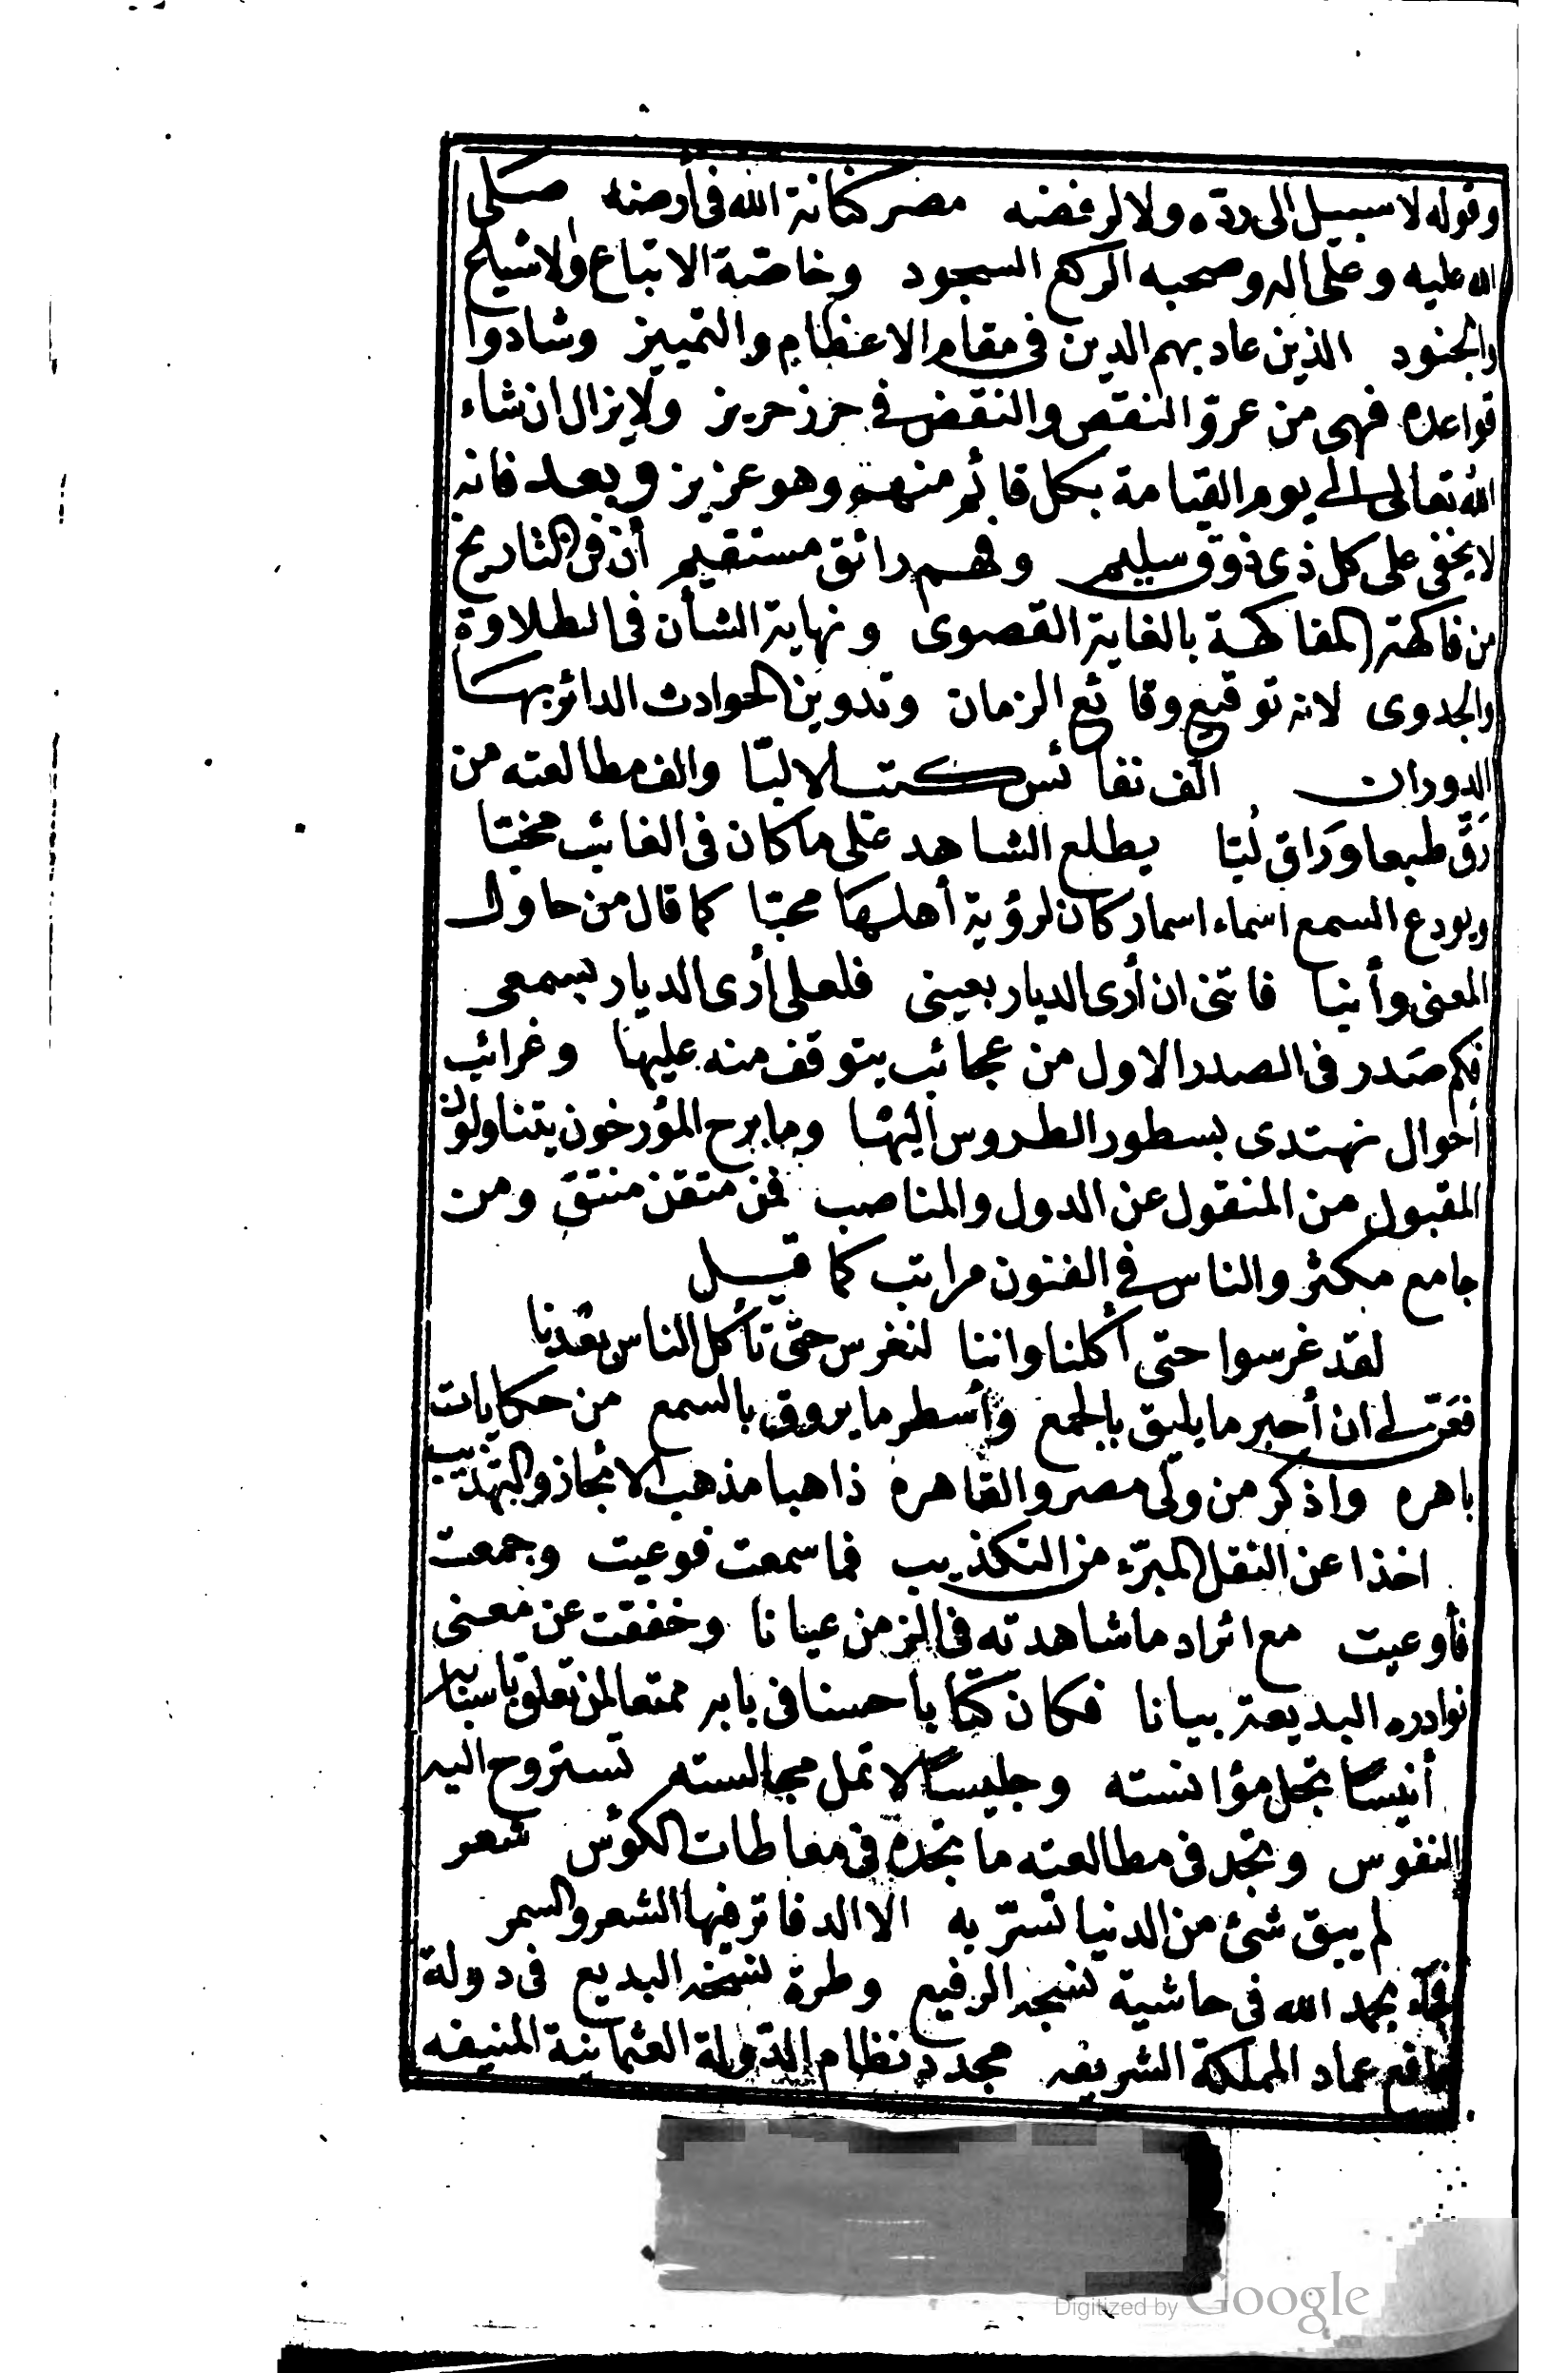 وقوله لا سبيل الى ردّه ولا لرفضه مصر كنانة الله فى أرضه صلى
الله عليه وعلى اله وصحبه الركع السجود وخاصّة الاتباع والاشياع
والجنود الذين عاد بهم الدين فى مقام الاعظام والتمييز وشادوا
قواعده فهى من عرق النقص والنقض فى حرز حريز ولا يزال ان شاء
الله تعالى الى يوم القيامة بكل قائم منهم وهو عزيز وبعد فانه
لا يخفى على كل ذى ذوق سليم وفهم رائق مستقيم أن فن التاريخ
من فاكهة المفاكهة بالغاية القصوى ونهاية الشأن فى الطلاوة
والجدوى لانه توقيع وقائع الزمان وتدوين الحوادث الدائر بها
الدوران الف نفائس كتب لالبّا والف مطالعته من
رَقّ طبعا وَراق لُبّا يطلع الشاهد على ما كان فى الغائب مخبّا
ويودع السمع اسماء اسمار كان لرؤية أهلها محبّا كما قال من حاول
المعنى وأنبا فاتنى ان أرى الديار بعينى فلعلى أرى الديار بسمعى
فكم صَدر فى الصدر الاول من عجائب يتوقف منه عليها وغرائب
أحوال نهتدى بسطور الطروس اليها وما برح المؤرخون يتناولون
المقبول من المنقول عن الدول والمناصب فمن متقن منتق ومن
جامع مكثر والناس فى الفنون مراتب كما قيل
لقد غرسوا حتى أكلنا واننا لنغرس حتى تأكل الناس بعدنا
فعَنّ لى ان أحبر ما يليق بالجمع وأسطر ما يروق بالسمع من حكايات
باهره واذكر من ولى مصر والقاهره ذاهبا مذهب الايجاز والتهذيب
اخذا عن النقل المبرّء من التكذيب فما سمعت فوعيت وجمعت
فأوعيت مع ايراد ما شاهدته فى الزمن عيانا وخففت عن معنى
نوادره البديعة بيانا فكان كتابا حسنا فى بابه ممتعا لمن تعلق باسبابه
أنيسًا تجل مؤانسته وجليسًا لا تمل مجالسته تستروح اليه
النفوس وتجد فى مطالعته ما تجده فى معاطات الكؤس شعر
لم يبق شئ من الدنيا تسرّ به الا الدفاتر فيها الشعر والسمر
فجآء بحمد الله فى حاشية نسجه الرفيع وطرة نسخه البديع فى دولة
رافع عماد المملكة الشريفه مجدد نظام الدّولة العثمانية المنيفه
Digitized by Google